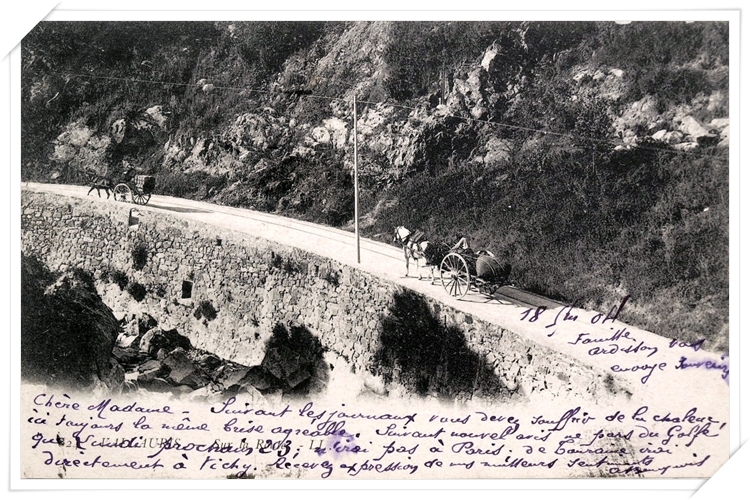 18 Juillet 04
Famille
Ardisson vous
envoye Souvenirs
Chère Madame - Suivant les journaux vous devez souffrir de la chaleur,
ici toujours la même brise agréable. Suivant nouvel avis ne pars du Golfe
que Lundi prochain 23; n'irai pas à Paris; de irai
directement à Vichy. Recevez expression de mes meilleurs sentiments
VALLAURIS. - Sur la Route. - LL